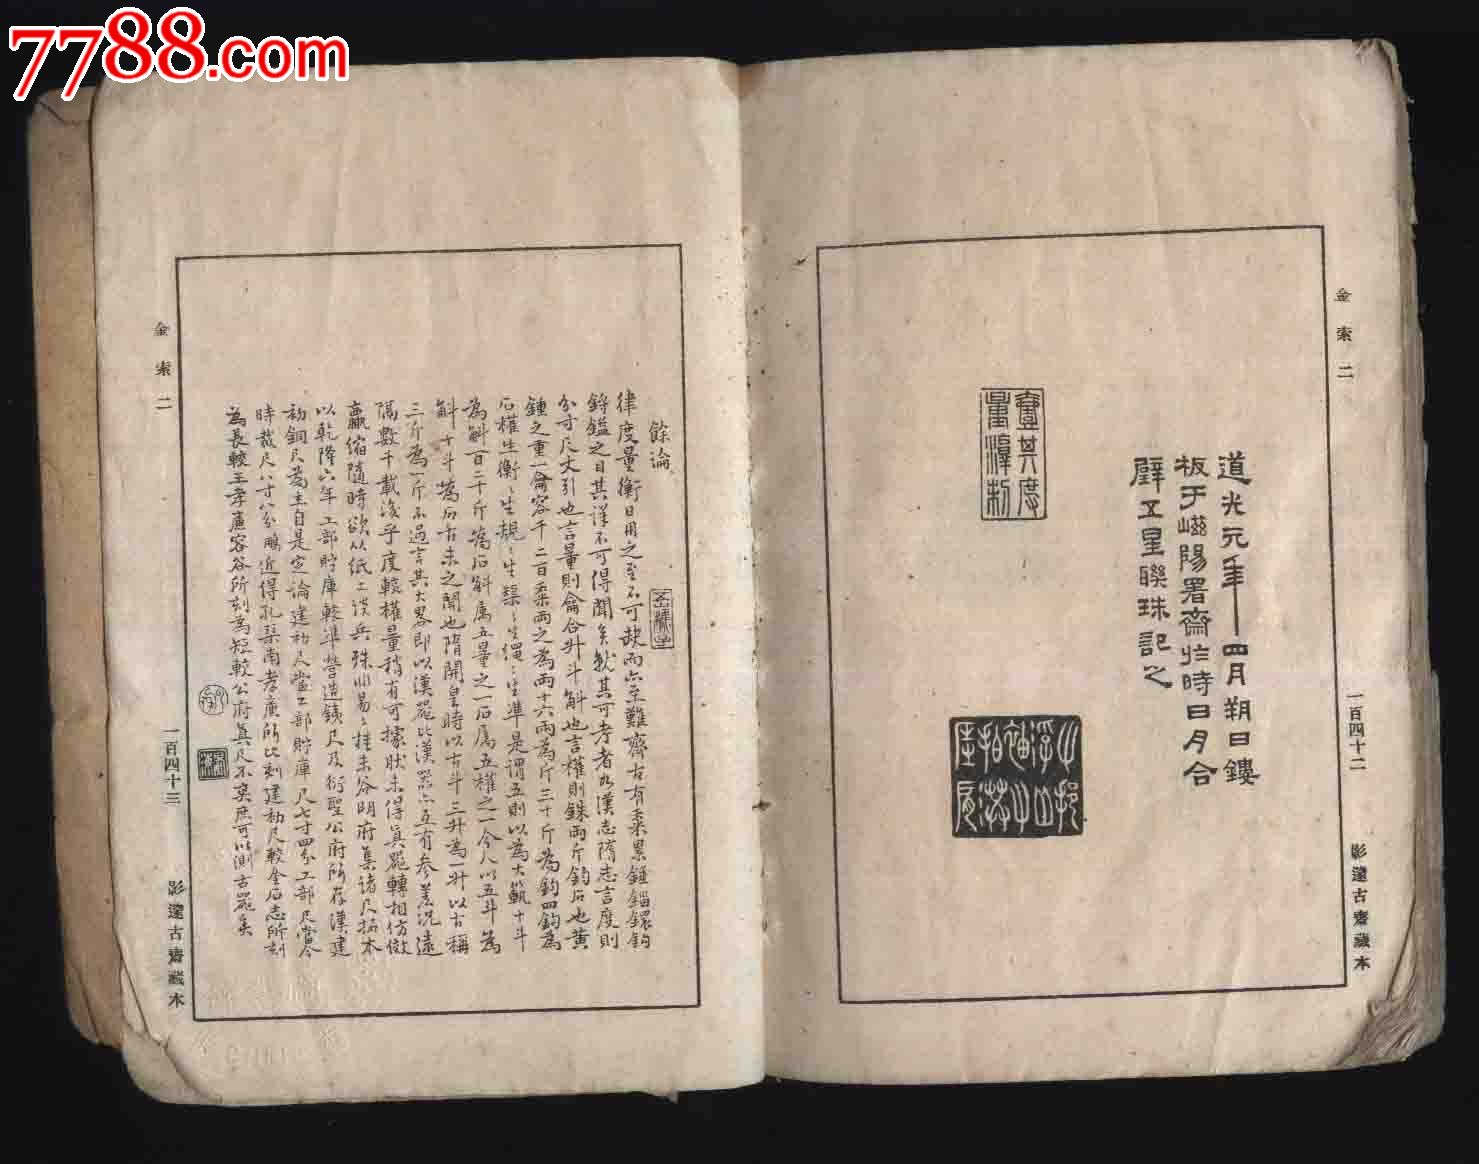 7788.com
金索二
一百四十二
影邃古齋藏本
道光元年四月朔日鏤
板于嵫陽署齋於時日月合
璧五星聯珠記之
壹其度
量淳制
金索二
一百四十三
影邃古齋藏本
餘論
律度量衡日用之至不可缺而亦至難齊古有黍累錘錙鍰鈞
鋝鎰之目其詳不可得聞矣就其可考者如漢志隋志言度則
分寸尺丈引也言量則龠合升斗斛也言權則銖兩斤鈞石也黃
鍾之重一龠容千二百黍兩之為兩十六兩為斤三十斤為鈞四鈞為
石權生衡〻生規〻生榘〻生繩〻生準是謂五則以為大範十斗
為斛百二十斤為石斛屬五量之一石屬五權之一今人以五斗為
斛十斗為石古未之聞也隋開皇時以古斗三升為一升以古稱
三斤為一斤不過言其大畧即以漢器比漢器亦互有參差況遠
隔數千載後乎度較權量稍有可據狀未得真器轉相仿做
贏縮隨時欲以紙上談兵殊非易〻桂未谷明府集諸尺搨本
以乾隆六年工部貯庫較準營造鐵尺及衍聖公府所存漢建
初銅尺為主自是定論建初尺當工部貯庫尺七寸四分工部尺當今
時裁尺八寸八分鵬近得孔琹南孝廉所比刻建初尺較金石志所刻
為長較王孝廉容谷所刻為短較公府真尺不爽庶可以測古器矣